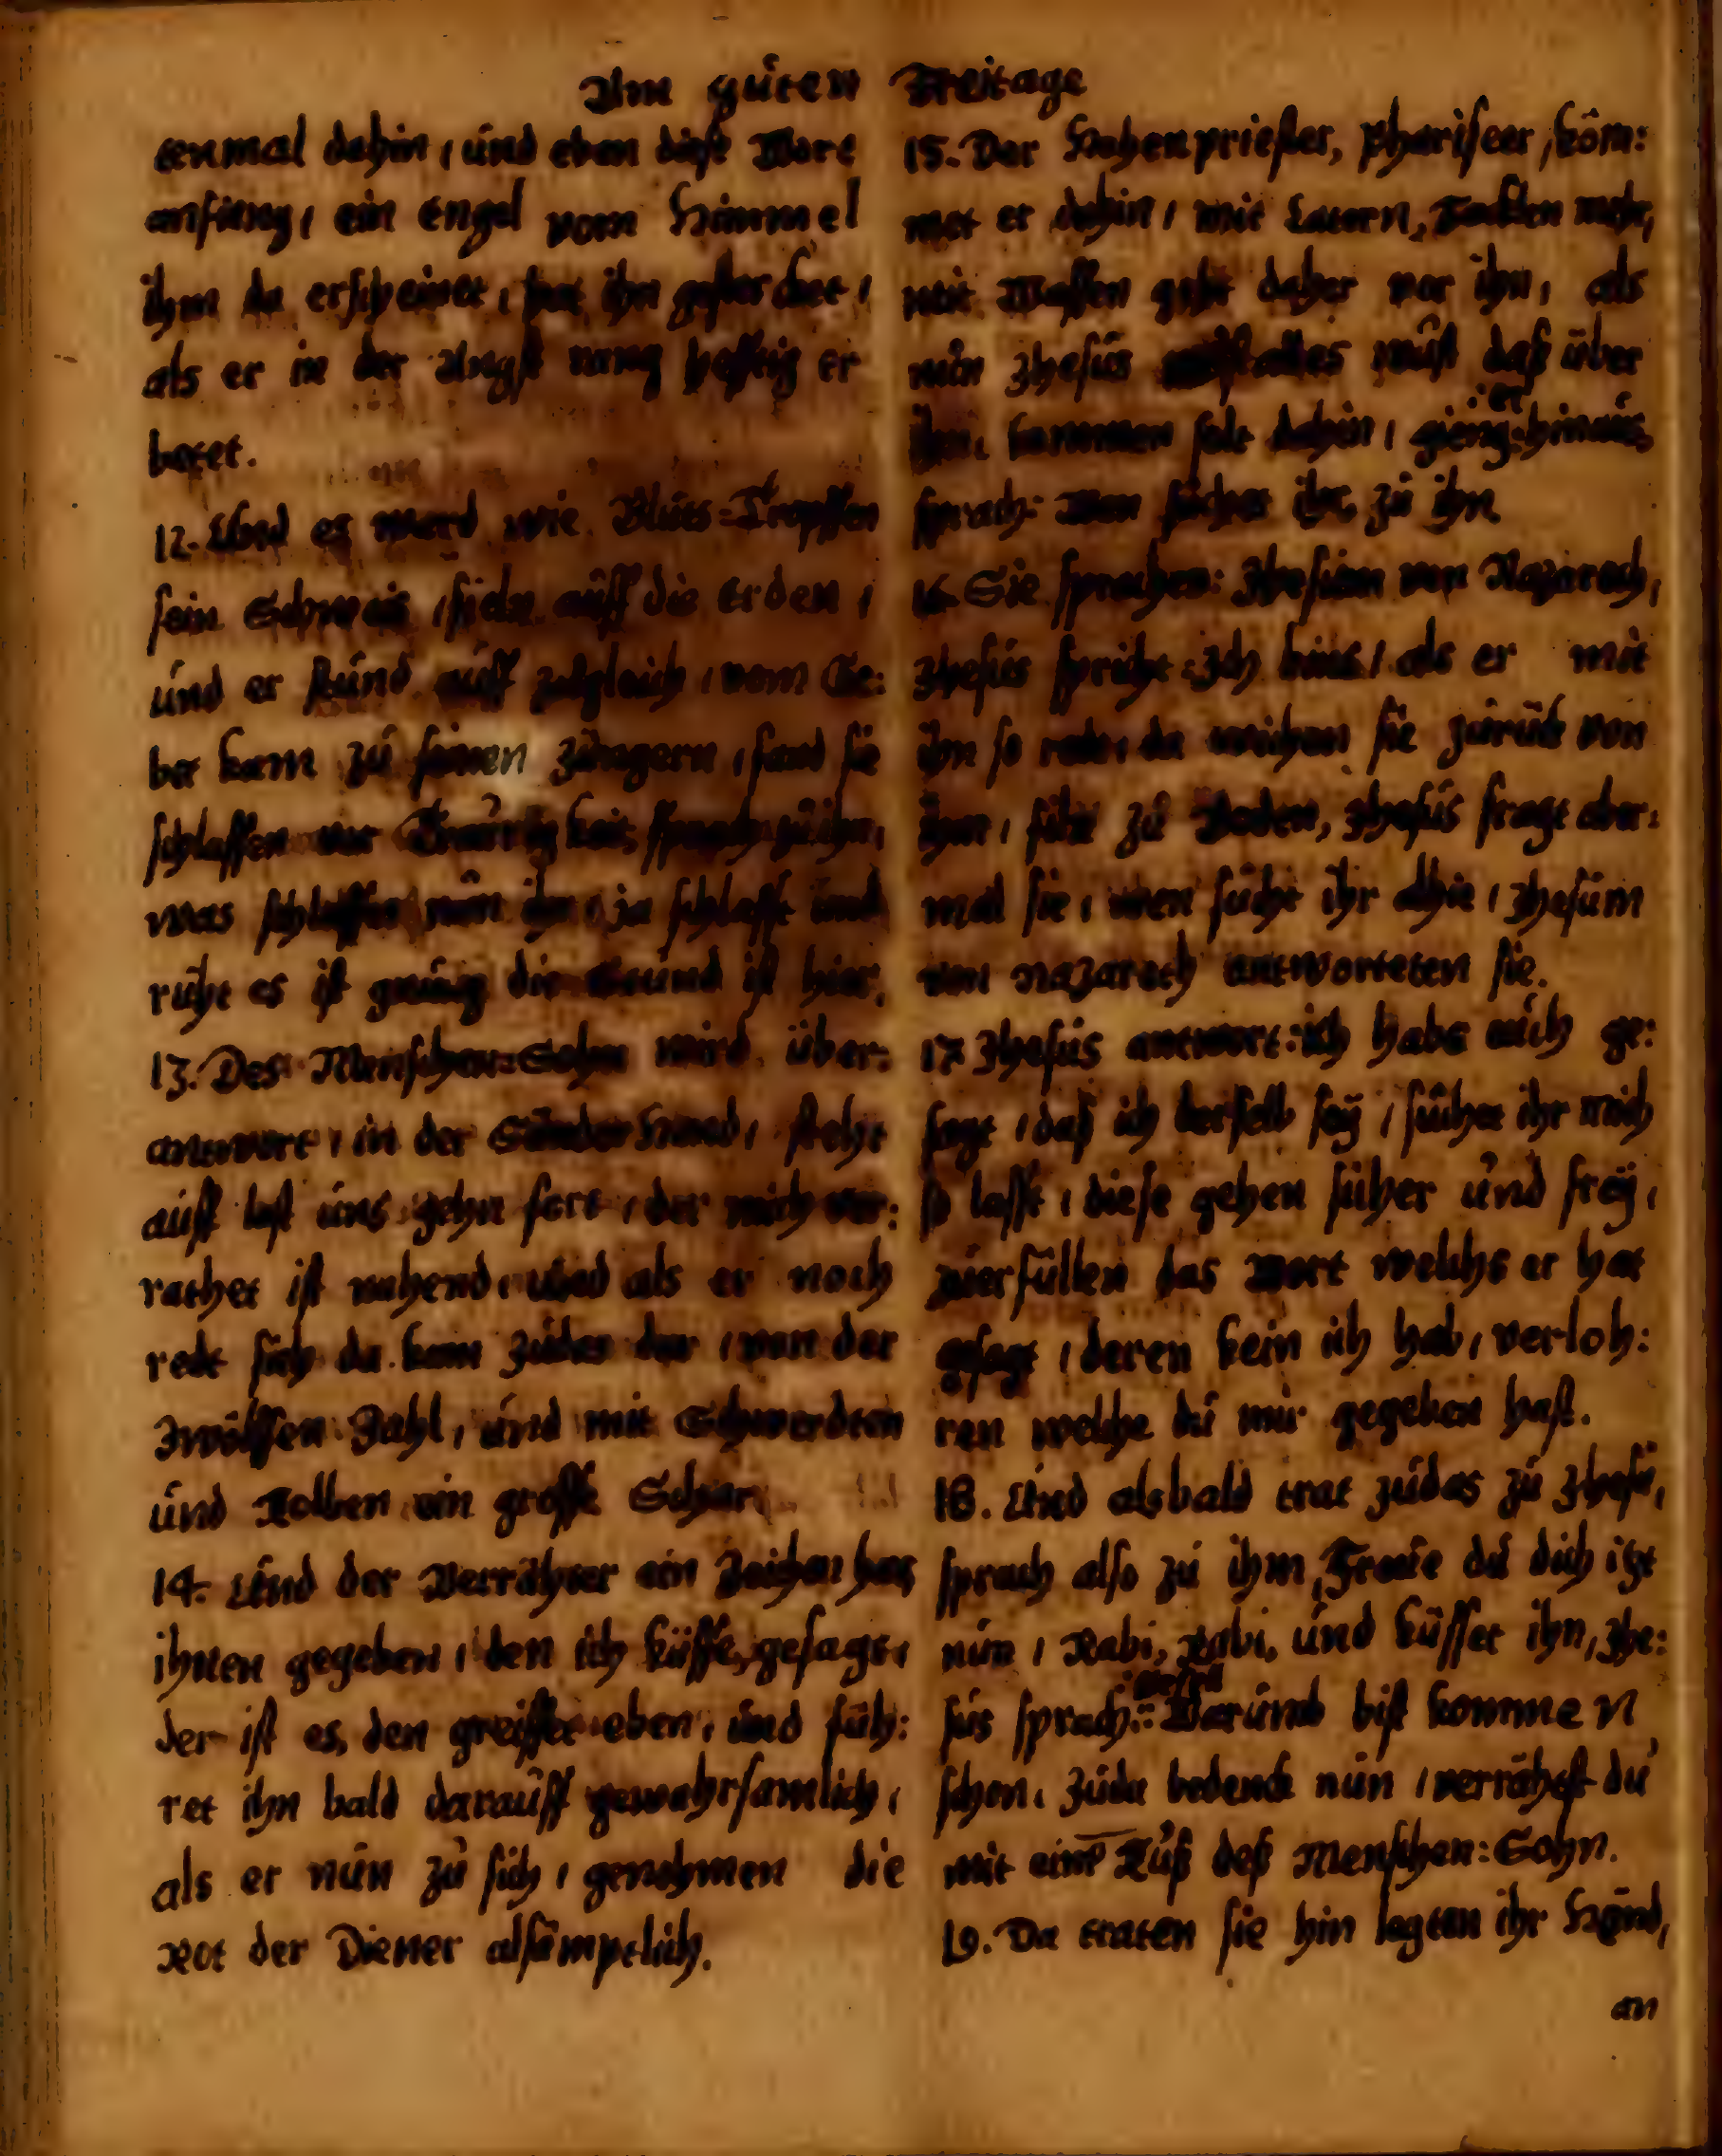 Am guten Freitage
tenmal dahin, und eben diese Wort
anfieng, ein Engel vom Himmel
ihm da erscheinet, hat ihn gesterchet,
als er in der Angst rang hefftig er
betet.
12. Und es ward wie Bluts=Tropffen
sein Schweis, fieln auff die Erden,
und er stund auff zugleich, vom Ge:
bet kam zu seinen Jüngern, fand sie
schlaffen vor Traurigkeit, sprach zu ihn,
was schlaffen nun ihr, ja schlafft und
ruht es ist gnung die Stund ist hier,
13. Des Menschen=Sohn wird über:
antwort, in der Sünder Hand, steht
auff last uns gehn fort, der mich ver:
rathet ist nahend, und als er noch
redt sich da kam Judas dar, von der
Zwölffen Zahl, und mit Schwerdten
und Kolben ein grosse Schar.
14. Und der Verrähter ein Zeichen hat
ihnen gegeben, den ich küsse, gesagt,
der ist es, den greiffet eben, und füh:
ret ihn bald darauff gewahrsamlich,
als er nun zu sich, genohmen die
Rot der Diener alsämptlich.
15. Der Hohenpriester, Phariseer, köm:
met er dahin, mit Latern, Facklen mehr,
mit Waffen geht daher vor ihn, als
nun Jhesus alles wust daß über
ihn kommen solt dahin, gieng er hinaus,
sprach: Wen suchet ihr, zu ihn.
16. Sie sprachen: Jhesum von Nazareth,
Jhesus spricht: Ich bins, als er mit
ihn so redt, da weichen sie zurük von
ihm, fiehl zu Boden, Jhesus fragt aber:
mal sie, wen sucht ihr alhie, Jhesum
von Nazareth antworteten sie.
17. Jhesus antwort: ich habs euch ge:
sagt, daß ich derselb sey, suchet ihr mich
so lasst, diese gehen sicher und frey,
zuerfüllen das Wort welchs er hat
gesagt, deren kein ich hab, verloh:
ren welche du mir gegeben hast.
18. Und alsbald trat Judas zu Jhesu,
sprach also zu ihm, Freue du dich itzt
nun, Rabi, Rabi, und küsset ihn, Jhe:
sus sprach: Warumb bist kommen
schon, Juda bedenck nun, verrähest du
mit eim Kuß deß Menschen:Sohn.
19. Da traten sie hin legten ihr Händ,
an